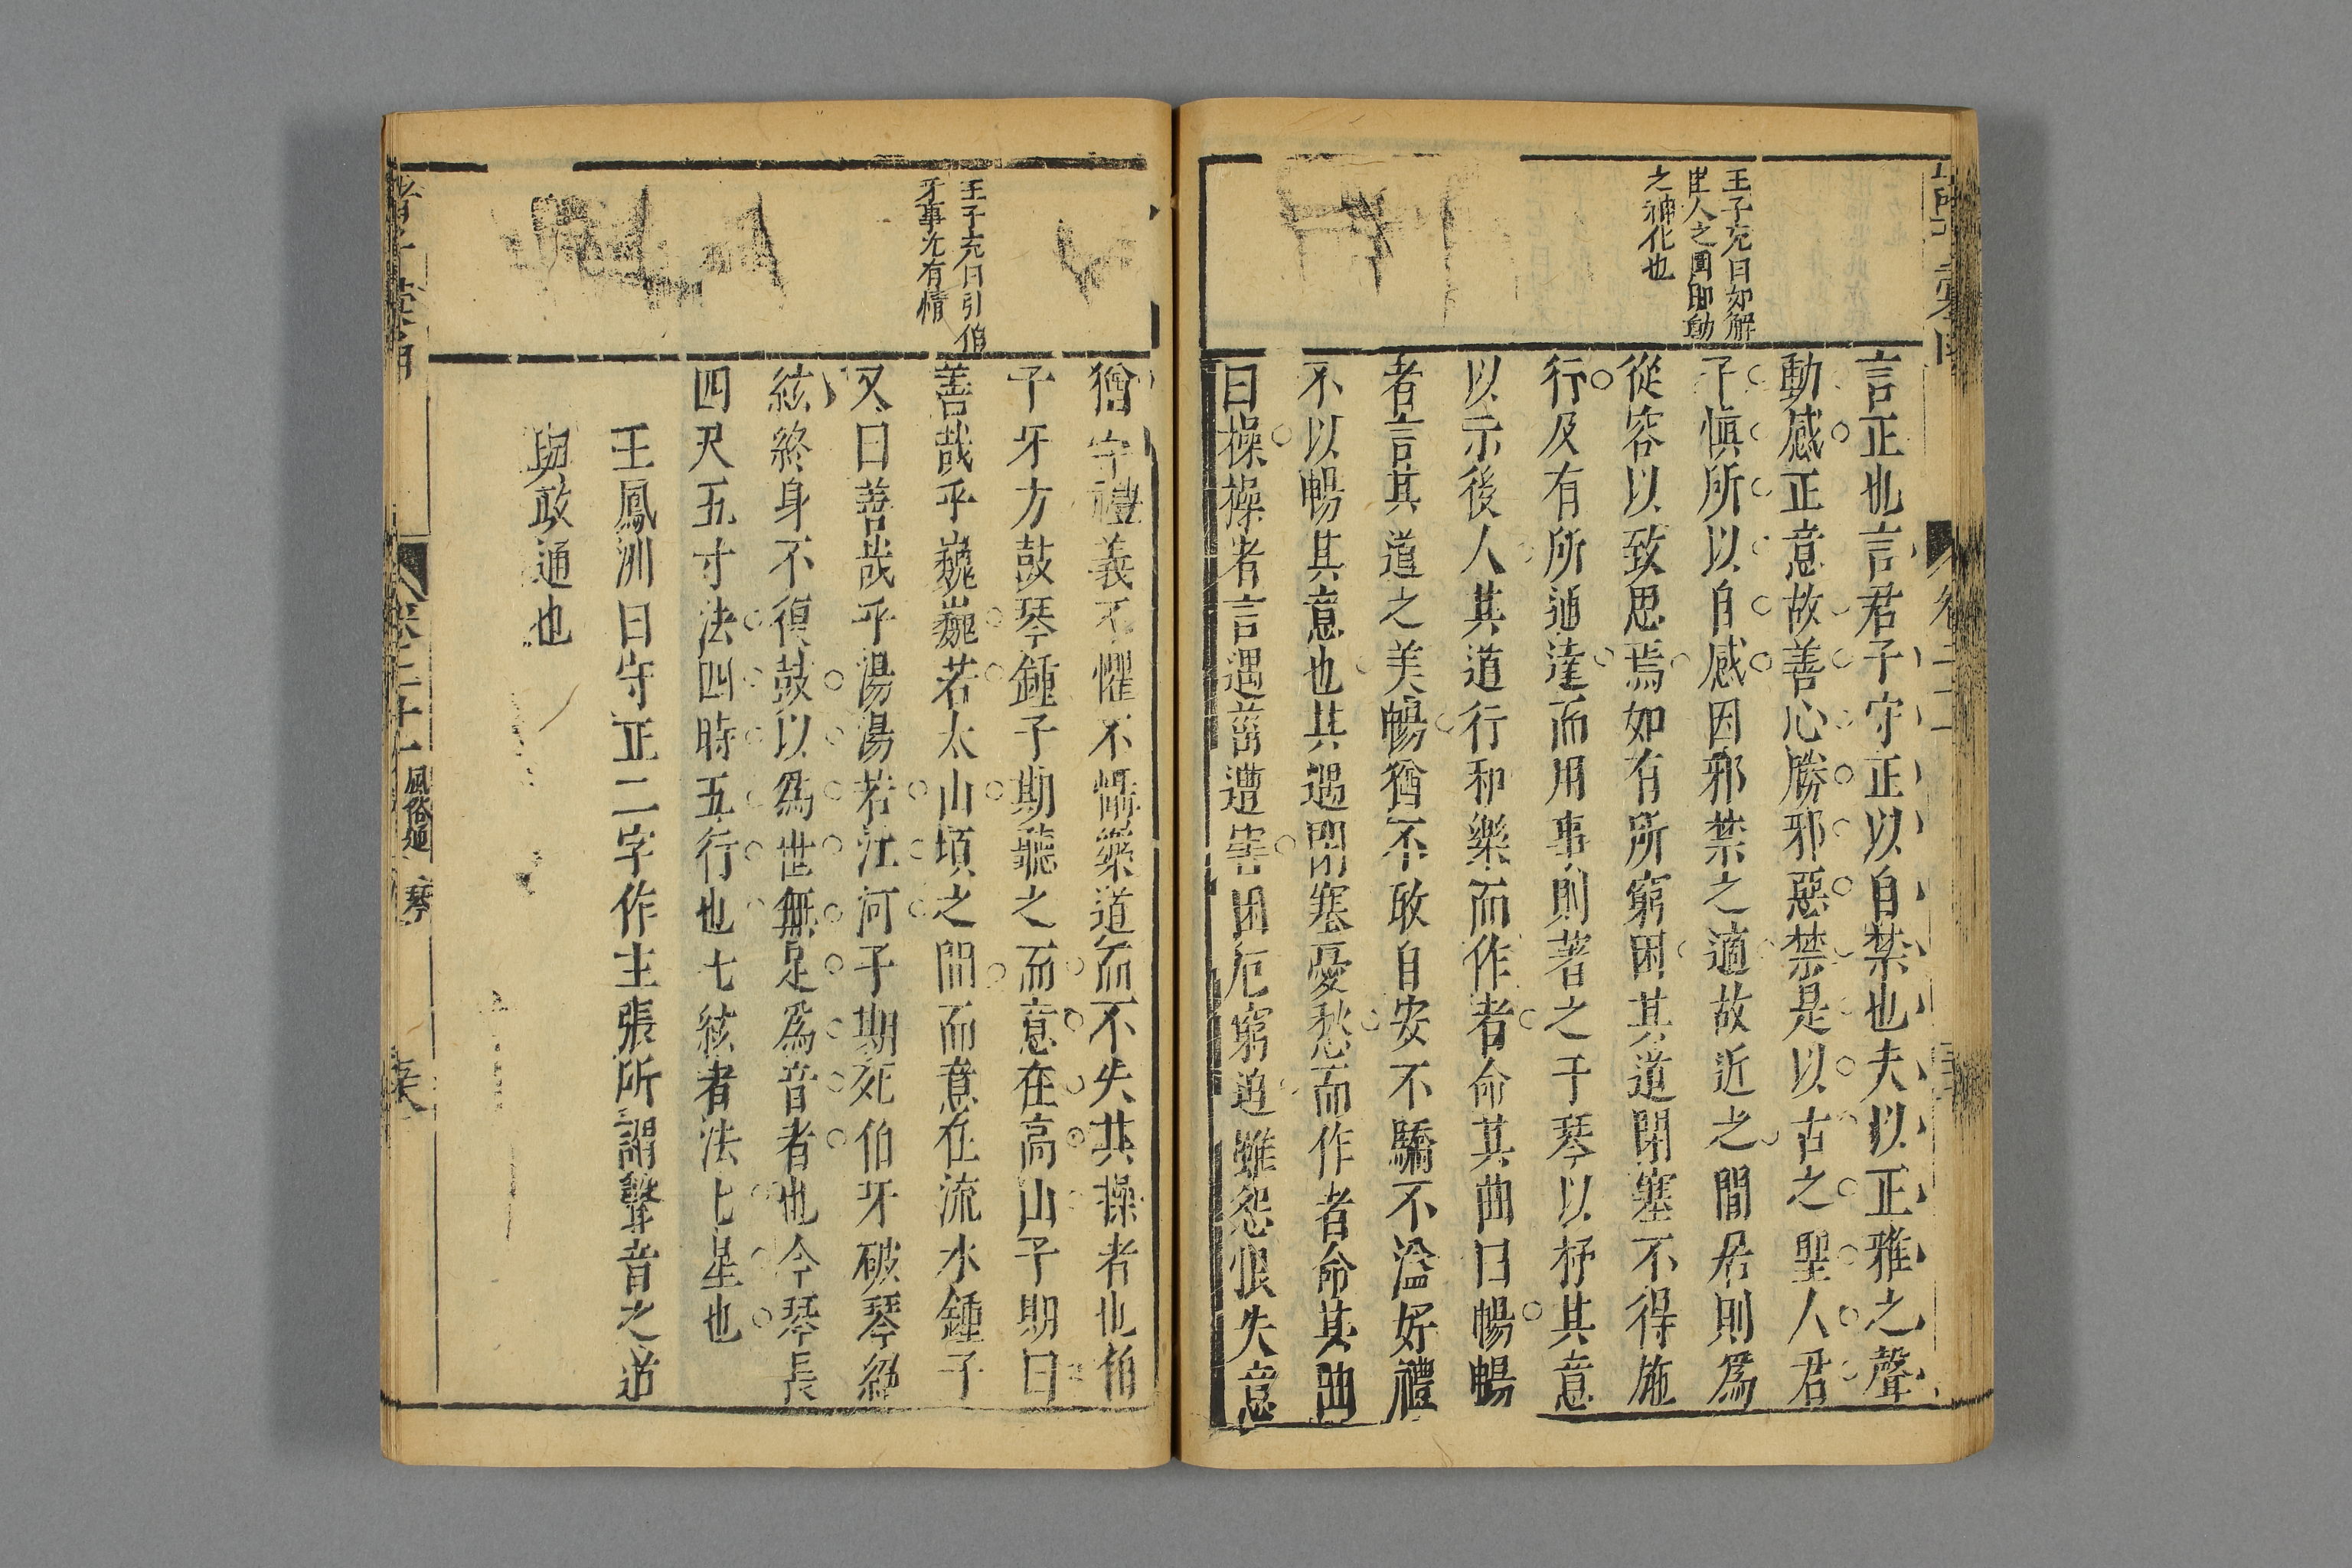 王子充曰如解
世人之慍即動
之神化也
言正也言君子守正以自禁也夫以正雅之聲
動感正意故善心勝邪惡禁是以古之聖人君
子慎所以自感因邪禁之適故近之間居則爲
從容以致思焉如有所窮困其道閉塞不得施
行及有所通達而用事則著之于琴以抒其意
以示後人其道行和樂而作者命其曲曰暢暢
者言其道之美暢猶不敢自安不驕不溢好禮
不以暢其意也其遇閉塞憂愁而作者命其曲
曰操操者言遇菑遭害困厄窮迫雖怨恨失意
王子充曰引伯
牙事尤有情
猶守禮義不懼不懾樂道而不失其操者也伯
子牙方鼓琴鍾子期聽之而意在高山子期曰
善哉乎巍巍若太山頃之間而意在流水鍾子
又曰善哉乎湯湯若江河子期死伯牙破琴絕
絃終身不復鼓以爲世無足爲音者也今琴長
四尺五寸法四時五行也七絃者法七星也
王鳳洲曰守正二字作主張所謂聲音之道
與政通也
卷二十一 風俗通 琴